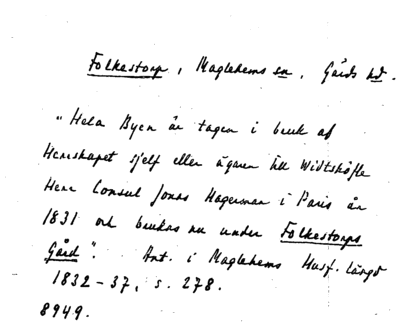 Folkestorp, Maglehems sn, Gärds hd.
"Hela Byen är tagen i bruk af
Herrskapet sjelf eller ägaren till Widtsköfle
Herr Consul Jonas Hagerman i Paris år
1831 och brukas nu under Folkestorps
Gård". Ant. i Maglehems Husf. längd
1832-37, s. 278.
8949.